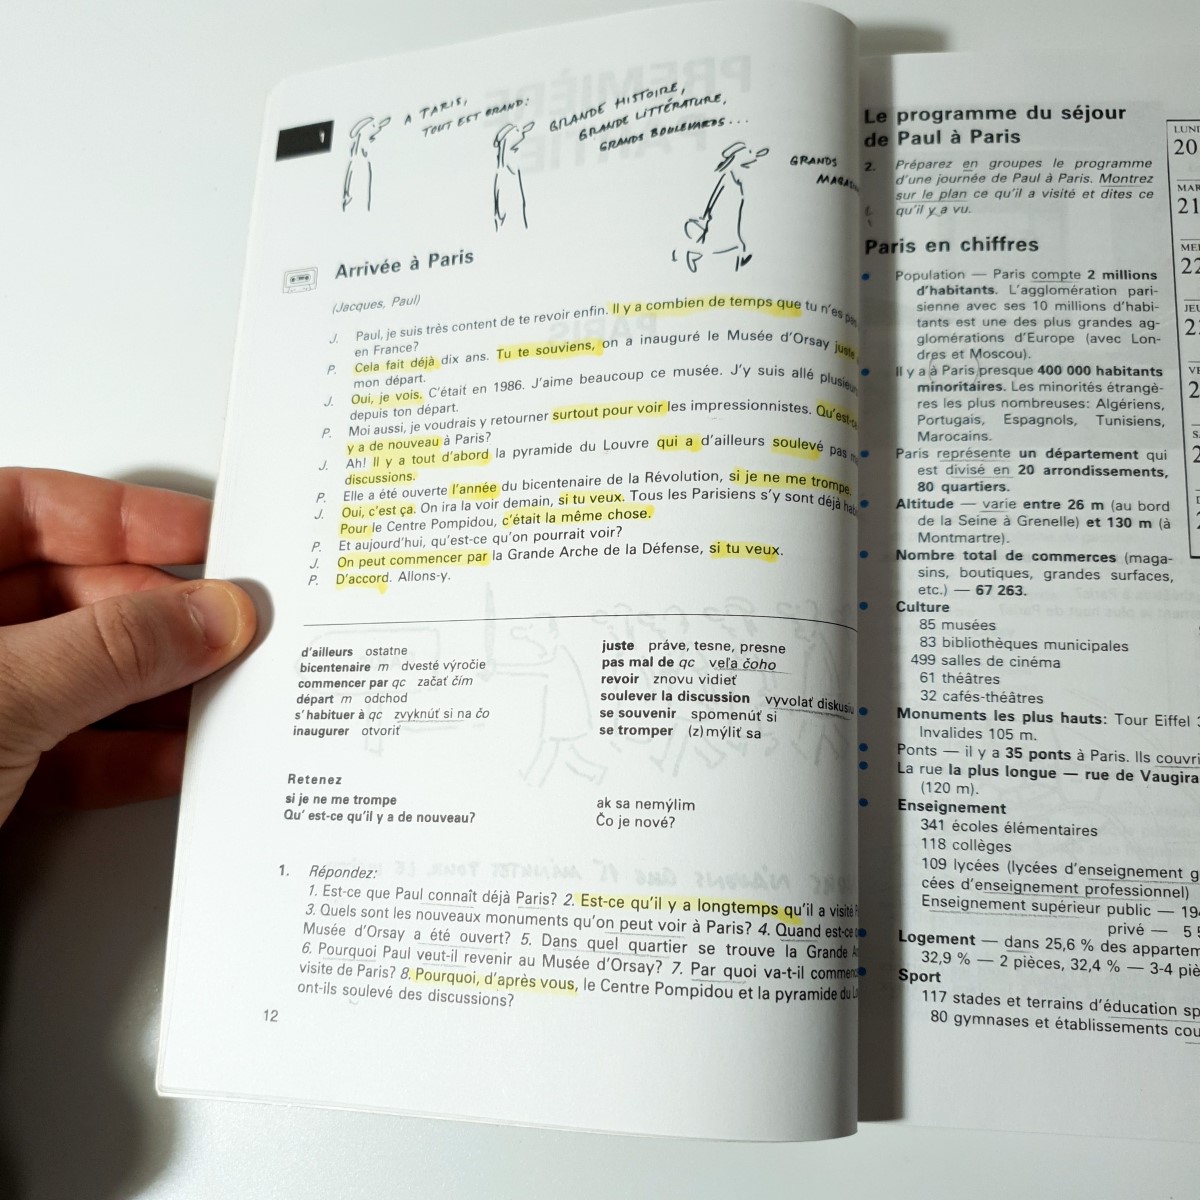 A PARIS,
TOUT EST GRAND:
GRANDE HISTOIRE,
GRANDE LITTÉRATURE,
GRANDS BOULEVARDS...
GRANDS
Arrivée à Paris
(Jacques, Paul)
J. Paul, je suis très content de te revoir enfin. Il y a combien de temps que tu n'es
en France?
P. Cela fait déjà dix ans. Tu te souviens, on a inauguré le Musée d'Orsay juste
mon départ.
J. Oui, je vois. C'était en 1986. J'aime beaucoup ce musée. J'y suis allé
depuis ton départ.
P. Moi aussi, je voudrais y retourner surtout pour voir les impressionnistes.
y a de nouveau à Paris?
J. Ah! Il y a tout d'abord la pyramide du Louvre qui a d'ailleurs soulevé pas
discussions.
P. Elle a été ouverte l'année du bicentenaire de la Révolution, si je ne me trompe.
J. Oui, c'est ça. On ira la voir demain, si tu veux. Tous les Parisiens s'y sont déjà
Pour le Centre Pompidou, c'était la même chose.
P. Et aujourd'hui, qu'est-ce qu'on pourrait voir?
J. On peut commencer par la Grande Arche de la Défense, si tu veux.
P. D'accord. Allons-y.
d'ailleurs ostatne
bicentenaire m dvesté výročie
commencer par qc začať čím
départ m odchod
s'habituer à qc zvyknúť si na čo
inaugurer otvoriť
juste práve, tesne, presne
pas mal de qc veľa čoho
revoir znovu vidieť
soulever la discussion vyvolať diskusiu
se souvenir spomenúť si
se tromper (z)mýliť sa
Retenez
si je ne me trompe ak sa nemýlim
Qu'est-ce qu'il y a de nouveau? Čo je nové?
1. Répondez:
1. Est-ce que Paul connaît déjà Paris? 2. Est-ce qu'il y a longtemps qu'il a visité
3. Quels sont les nouveaux monuments qu'on peut voir à Paris? 4. Quand est-ce
Musée d'Orsay a été ouvert? 5. Dans quel quartier se trouve la Grande
6. Pourquoi Paul veut-il revenir au Musée d'Orsay? 7. Par quoi va-t-il
visite de Paris? 8. Pourquoi, d'après vous, le Centre Pompidou et la pyramide du
ont-ils soulevé des discussions?
12
Le programme du séjour
de Paul à Paris
2. Préparez en groupes le programme
d'une journée de Paul à Paris. Montrez
sur le plan ce qu'il a visité et dites ce
qu'il y a vu.
Paris en chiffres
Population — Paris compte 2 millions
d'habitants. L'agglomération pari-
sienne avec ses 10 millions d'habi-
tants est une des plus grandes ag-
glomérations d'Europe (avec Lon-
dres et Moscou).
Il y a à Paris presque 400 000 habitants
minoritaires. Les minorités étrangè-
res les plus nombreuses: Algériens,
Portugais, Espagnols, Tunisiens,
Marocains.
Paris représente un département qui
est divisé en 20 arrondissements,
80 quartiers.
Altitude — varie entre 26 m (au bord
de la Seine à Grenelle) et 130 m (à
Montmartre).
Nombre total de commerces (maga-
sins, boutiques, grandes surfaces,
etc.) — 67 263.
Culture
85 musées
83 bibliothèques municipales
499 salles de cinéma
61 théâtres
32 cafés-théâtres
Monuments les plus hauts: Tour Eiffel
Invalides 105 m.
Ponts — il y a 35 ponts à Paris. Ils
La rue la plus longue — rue de
(120 m).
Enseignement
341 écoles élémentaires
118 collèges
109 lycées (lycées d'enseignement
cées d'enseignement professionnel)
Enseignement supérieur public —
privé —
Logement — dans 25,6 % des
32,9 % — 2 pièces, 32,4 % — 3-4
Sport
117 stades et terrains d'éducation
80 gymnases et établissements
20
21
22